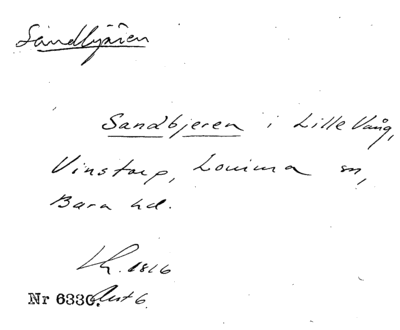 Sandbjären
Sandbjeren i Lille Vång,
Vinstorp, Lomma sn,
Bara hd.
Lk. 1816
Nr 6330. Akt 6.